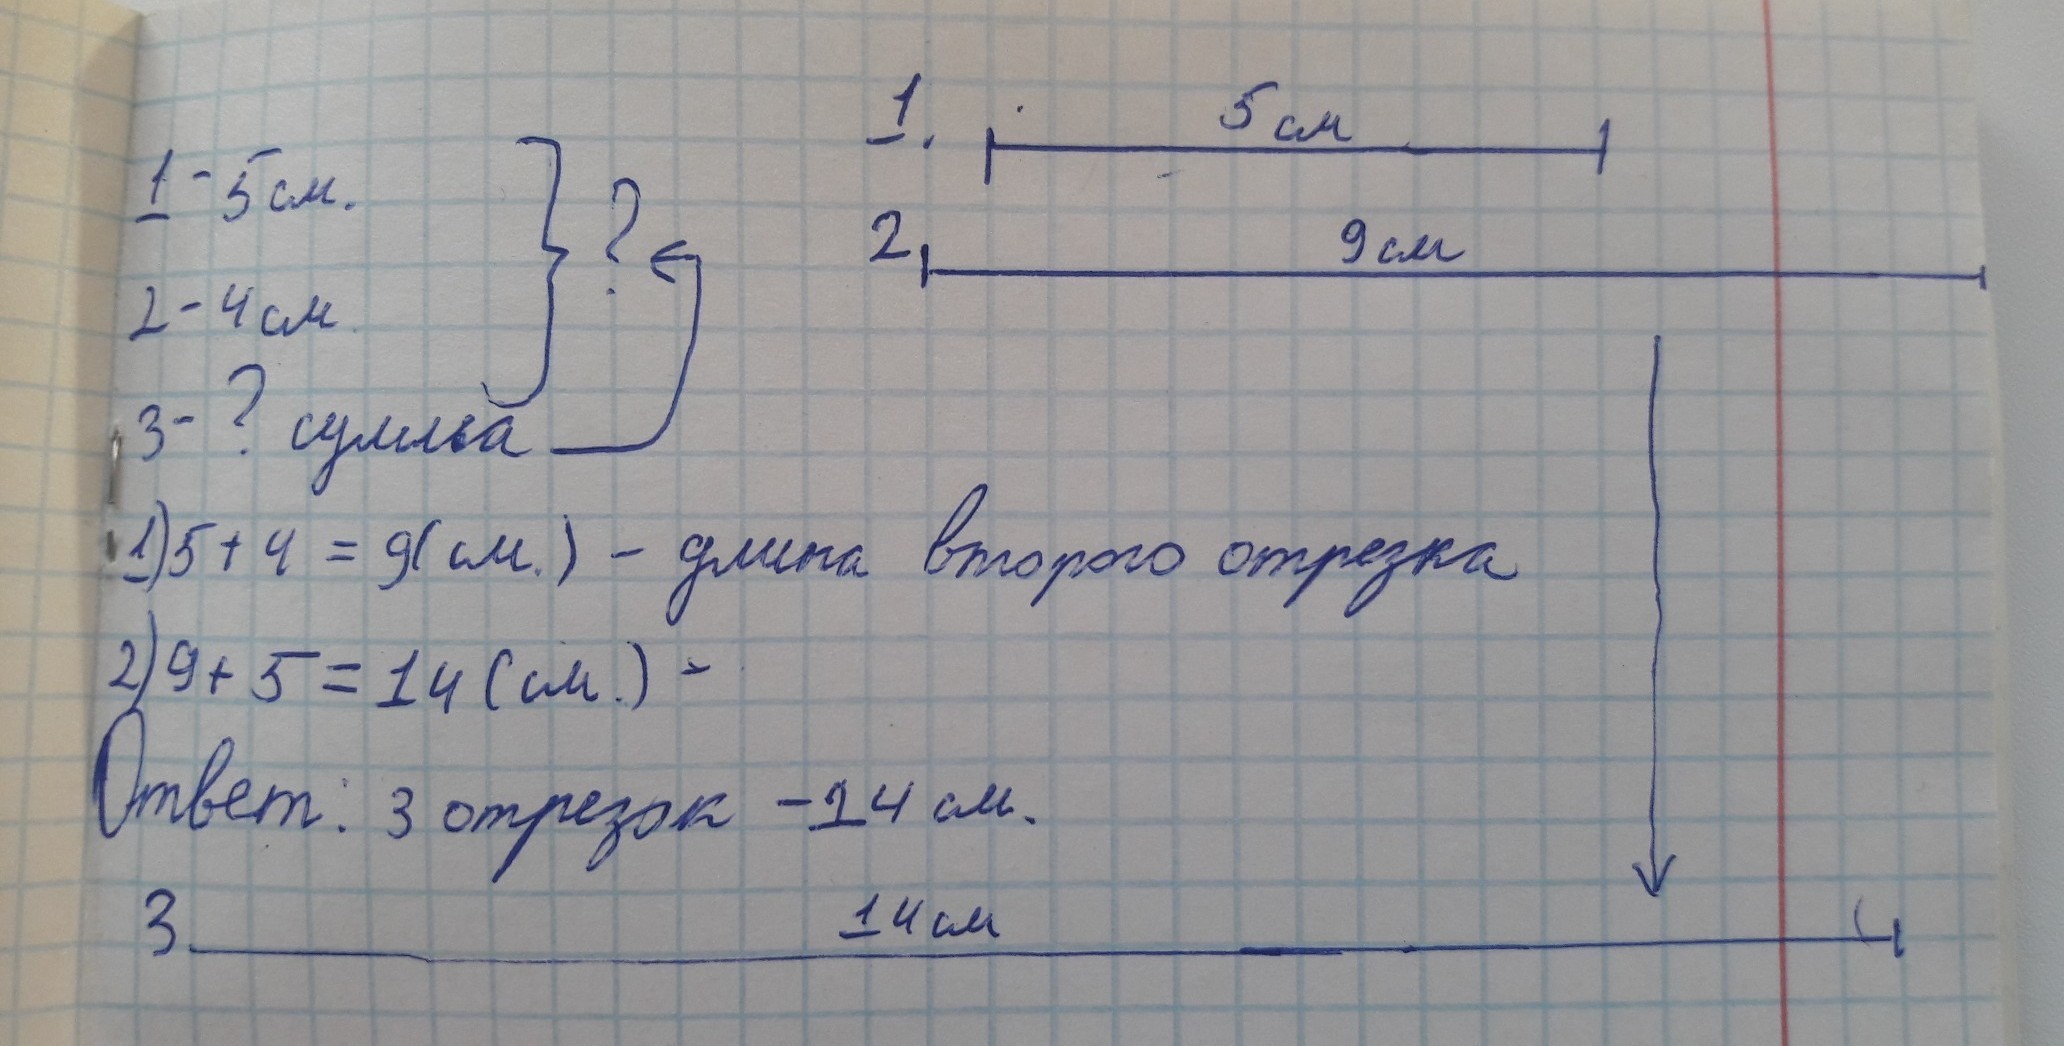 1 - 5 см.
2 - 4 см.
3 - ? сумма
?
1. 5 см
2. 9 см
1) 5 + 4 = 9 (см.) - длина второго отрезка
2) 9 + 5 = 14 (см.) -
Ответ: 3 отрезок - 14 см.
3 14 см